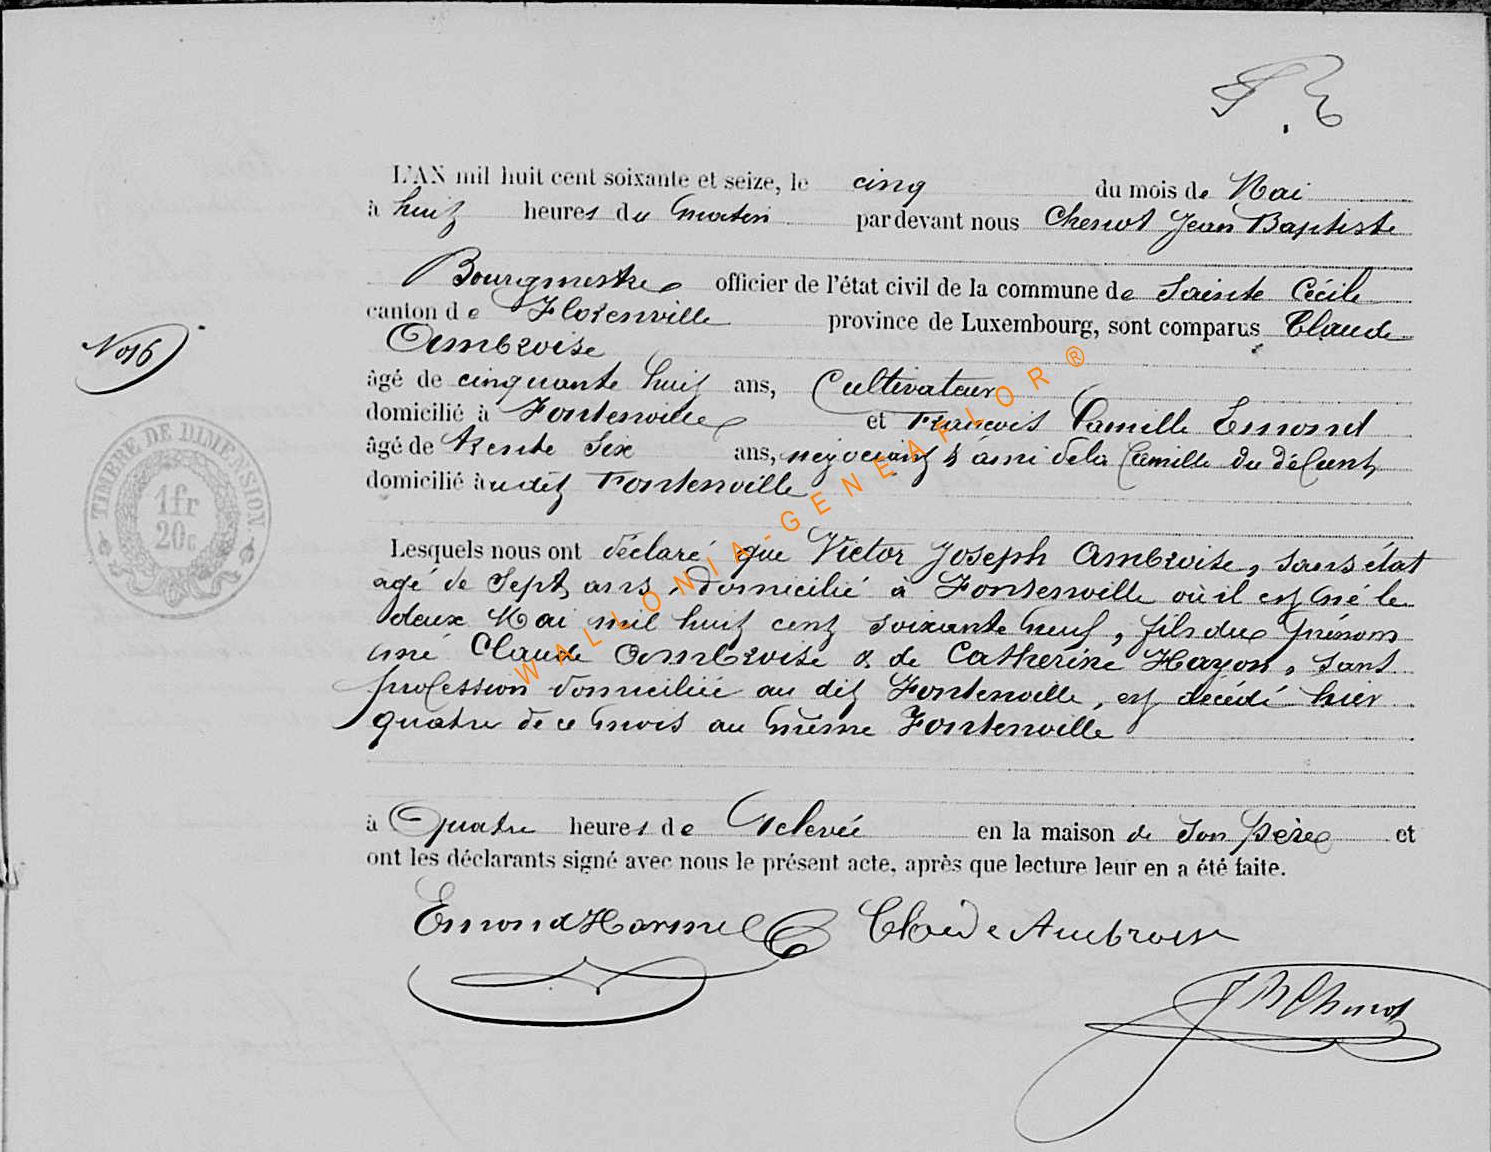 L'AN mil huit cent soixante et seize, le cinq du mois de Mai
à huit heures du matin par devant nous Chenot Jean Baptiste
Bourgmestre officier de l'état civil de la commune de Sainte Cécile
canton de Florenville province de Luxembourg, sont comparus Claude
No 16
Ambroise
âgé de cinquante huit ans, Cultivateur
domicilié à Fontenoille et François Camille Emond
âgé de trente six ans, négociant & ami de la famille du défunt
domicilié audit Fontenoille
TIMBRE DE DIMENSION
1fr
20c
Lesquels nous ont déclaré que Victor Joseph Ambroise, sans état
agé de Sept ans, domicilié à Fontenoille où il est né le
deux Mai mil huit cent soixante neuf, fils du prénom
mé Claude Ambroise & de Catherine Hayon, sans
profession domiciliée au dit Fontenoille, est décédé hier
quatre de ce mois au même Fontenoille
à Quatre heures de relevée en la maison de son père et
ont les déclarants signé avec nous le présent acte, après que lecture leur en a été faite.
Emond Harmel Claude Ambroise
JB Chenot
WALLONIA-GENEAFLOR®